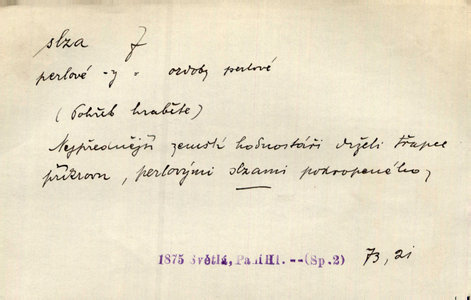 slza f
perlové -y = ozdoby perlové
(Pohřeb hraběte)
Nejpřednější zemští hodnostáři drželi třapce
příkrovu, perlovými slzami pokropeného,
1875 Světlá, Paní Hl. -- (Sp.2) 73, 21